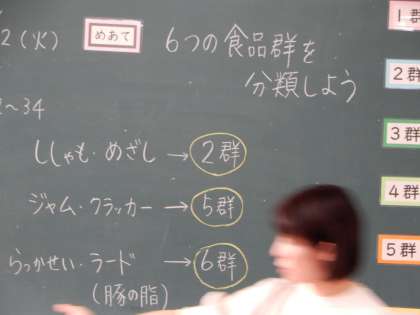 2(火)
めあて
6つの食品群を
分類しよう
~34
ししゃも・めざし→2群
ジャム・クラッカー→5群
らっかせい・ラード→6群
(豚の脂)
1群
2群
3群
4群
5群